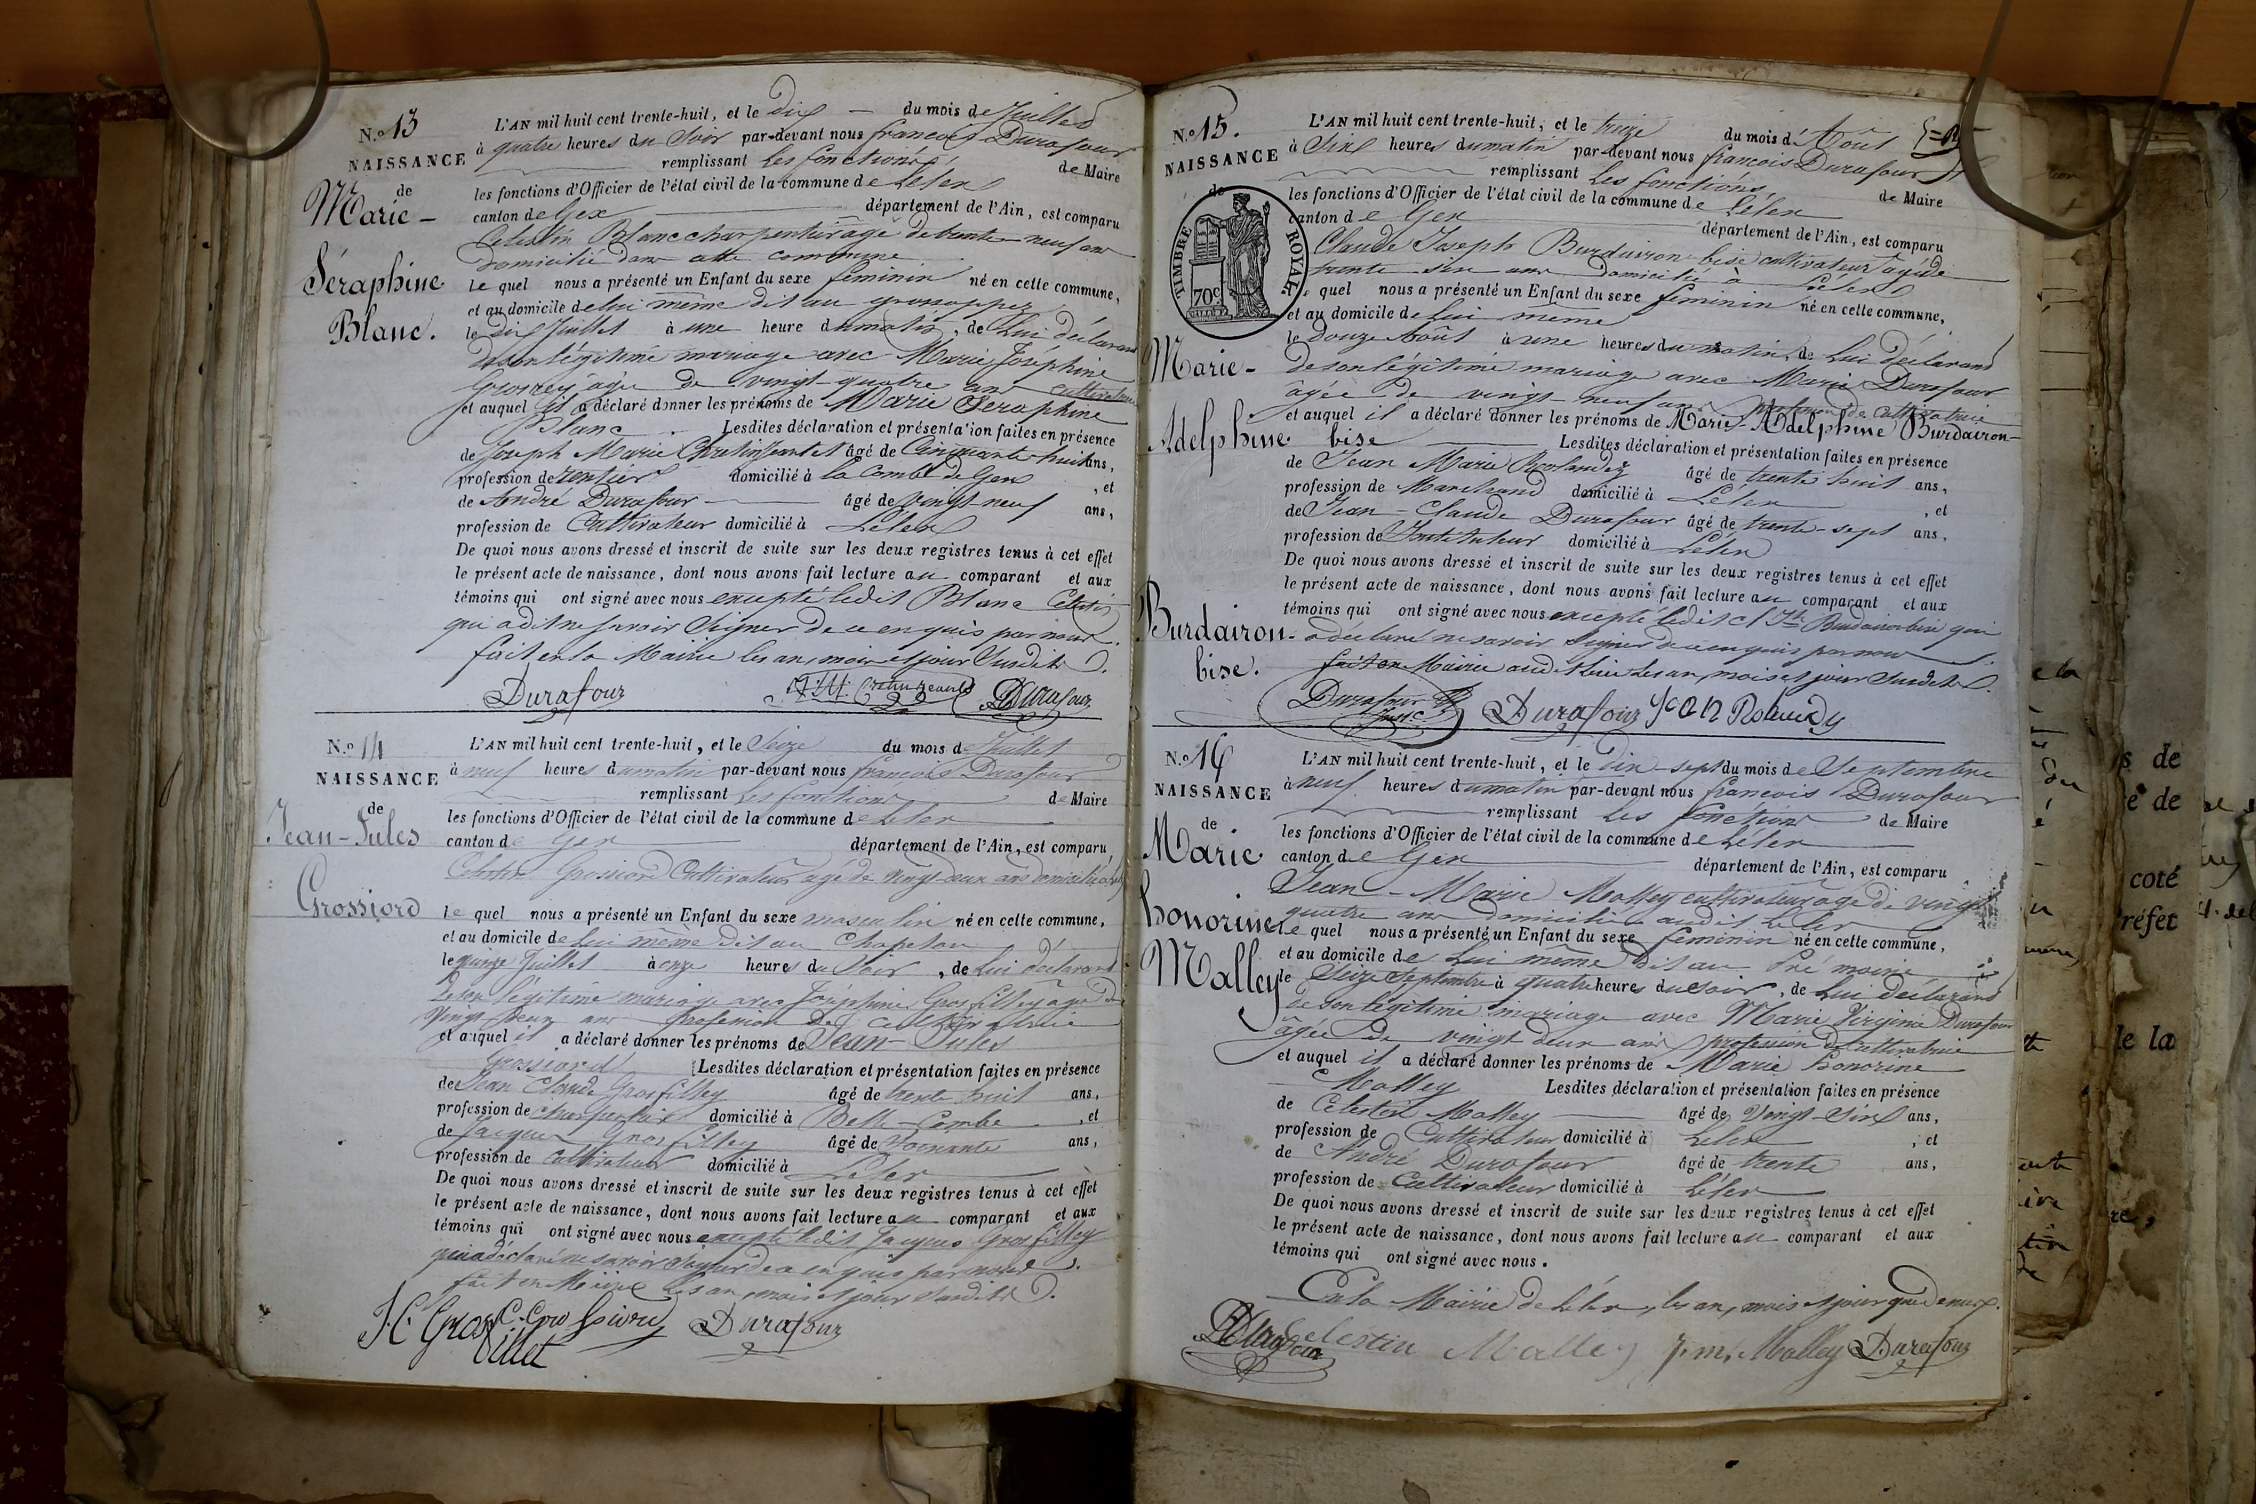 N.o 13
NAISSANCE
de
Marie-
Séraphine
Blanc.
L'AN mil huit cent trente-huit, et le dix du mois de Juillet
à quatre heures du Soir par-devant nous françois Durafour
remplissant les fonctions de Maire
les fonctions d'Officier de l'état civil de la commune de Lélex
canton de Gex département de l'Ain, est comparu
Celestin Blanc charpentier âgé de trente-neuf ans
domicilié dans cette commune
Le quel nous a présenté un Enfant du sexe feminin né en cette commune,
et au domicile de lui même dit au
le dix Juillet à une heure du matin, de Lui déclarant
de son légitime mariage avec Marie Joséphine
Grosrey âgée de vingt-quatre ans cultivatrice
et auquel il a déclaré donner les prénoms de Marie Séraphine
Blanc. Lesdites déclaration et présentation faites en présence
de Joseph Marie âgé de Cinquante huit ans,
profession de rentier domicilié à la Combe de Gex, et
de André Durafour âgé de vingt-neuf ans,
profession de Cultivateur domicilié à Lélex
De quoi nous avons dressé et inscrit de suite sur les deux registres tenus à cet effet
le présent acte de naissance, dont nous avons fait lecture au comparant et aux
témoins qui ont signé avec nous excepté ledit Blanc Celestin
qui a dit ne savoir Signer de ce enquis par nous.
fait en la Mairie les an, mois et jour Susdits.
Durafour Durafour
N.o 14
NAISSANCE
de
Jean-Jules
Grossiord
L'AN mil huit cent trente-huit, et le Seize du mois de Juillet
à neuf heures du matin par-devant nous françois Durafour
remplissant les fonctions de Maire
les fonctions d'Officier de l'état civil de la commune de Lélex
canton de Gex département de l'Ain, est comparu
Celestin Grossiord Cultivateur âgé de vingt-deux ans domicilié à
Le quel nous a présenté un Enfant du sexe masculin né en cette commune,
et au domicile de Lui même dit au Chapelan
le quinze Juillet à onze heures du Soir, de Lui déclarant
de son légitime mariage avec Joséphine Grosfilley âgée de
vingt deux ans profession de cultivatrice
et auquel il a déclaré donner les prénoms de Jean-Jules
Grossiord Lesdites déclaration et présentation faites en présence
de Jean Claude Grosfilley âgé de trente huit ans,
profession de charpentier domicilié à Belle-Combe, et
de Jacques Grosfilley âgé de Soixante ans,
profession de cultivateur domicilié à Lélex
De quoi nous avons dressé et inscrit de suite sur les deux registres tenus à cet effet
le présent acte de naissance, dont nous avons fait lecture au comparant et aux
témoins qui ont signé avec nous excepté ledit Jacques Grosfilley
qui a déclaré ne savoir Signer de ce enquis par nous.
fait en Mairie les an, mois et jour Susdits.
J. C. Gros C. Grossiord Durafour
fillet
N.o 15.
NAISSANCE
de
TIMBRE ROYAL
70c
Marie-
Adelphine
Burdairon-
bise.
L'AN mil huit cent trente-huit, et le treize du mois de Août
à Six heures du matin par-devant nous françois Durafour
remplissant les fonctions de Maire
les fonctions d'Officier de l'état civil de la commune de Lélex
canton de Gex département de l'Ain, est comparu
Claude Joseph Burdairon-bise cultivateur âgé de
trente-six ans domicilié à Lélex
quel nous a présenté un Enfant du sexe feminin né en cette commune,
et au domicile de Lui même
le douze Août à une heures du matin, de Lui déclarant
de son légitime mariage avec Marie Durafour
âgée de vingt-neuf ans profession de cultivatrice
et auquel il a déclaré donner les prénoms de Marie-Adelphine Burdairon-
bise Lesdites déclaration et présentation faites en présence
de Jean Marie Rolandez âgé de trente huit ans,
profession de Marchand domicilié à Lélex, et
de Jean-Claude Durafour âgé de trente-sept ans,
profession de Instituteur domicilié à Lélex
De quoi nous avons dressé et inscrit de suite sur les deux registres tenus à cet effet
le présent acte de naissance, dont nous avons fait lecture au comparant et aux
témoins qui ont signé avec nous excepté ledit Cl Jh Burdairon bise qui
a déclaré ne savoir Signer de ce enquis par nous
fait en Mairie audit lieu les an, mois et jour Susdits.
Durafour Durafour Jean Rolandy
N.o 16
NAISSANCE
de
Marie
honorine
Malley
L'AN mil huit cent trente-huit, et le Dix-sept du mois de Septembre
à neuf heures du matin par-devant nous françois Durafour
remplissant les fonctions de Maire
les fonctions d'Officier de l'état civil de la commune de Lélex
canton de Gex département de l'Ain, est comparu
Jean-Marie Malley cultivateur âgé de vingt
quatre ans domicilié audit Lélex
Le quel nous a présenté un Enfant du sexe feminin né en cette commune,
et au domicile de Lui même dit au Pré
le Seize Septembre à quatre heures du soir, de Lui déclarant
de son légitime mariage avec Marie Virginie Durafour
âgée de vingt deux ans profession de cultivatrice
et auquel il a déclaré donner les prénoms de Marie honorine
Malley Lesdites déclaration et présentation faites en présence
de Celestin Malley âgé de Vingt-Six ans,
profession de Cultivateur domicilié à Lélex, et
de André Durafour âgé de trente ans,
profession de Cultivateur domicilié à Lélex
De quoi nous avons dressé et inscrit de suite sur les deux registres tenus à cet effet
le présent acte de naissance, dont nous avons fait lecture au comparant et aux
témoins qui ont signé avec nous.
En la Mairie de Lélex, les an, mois et jour que dessus.
Durafour Celestin Malley j. m. Malley Durafour
s de
e de
coté
réfet
le la